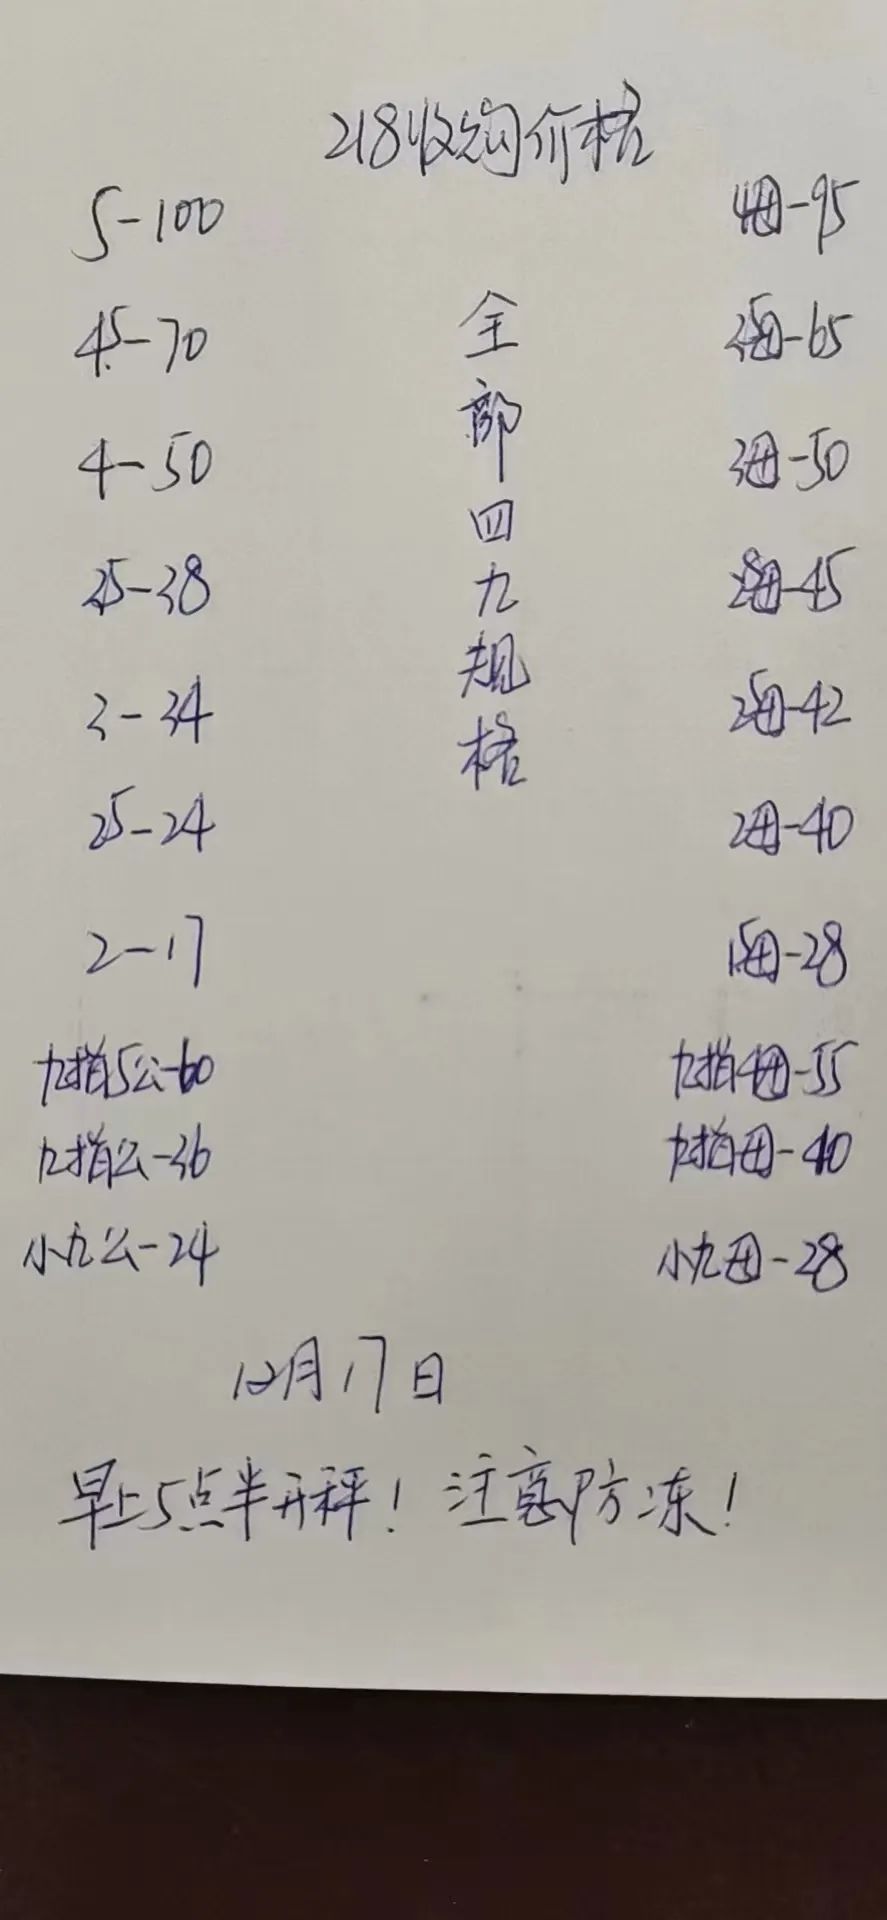 218收购价格
5-100
4母-95
45-70
35母-65
4-50
3母-50
35-38
28母-45
3-34
25母-42
25-24
2母-40
2-17
15母-28
全部四九规格
九指5公-60
九指4母-55
九指公-36
九指母-40
小九公-24
小九母-28
12月17日
早上5点半开秤！注意防冻！